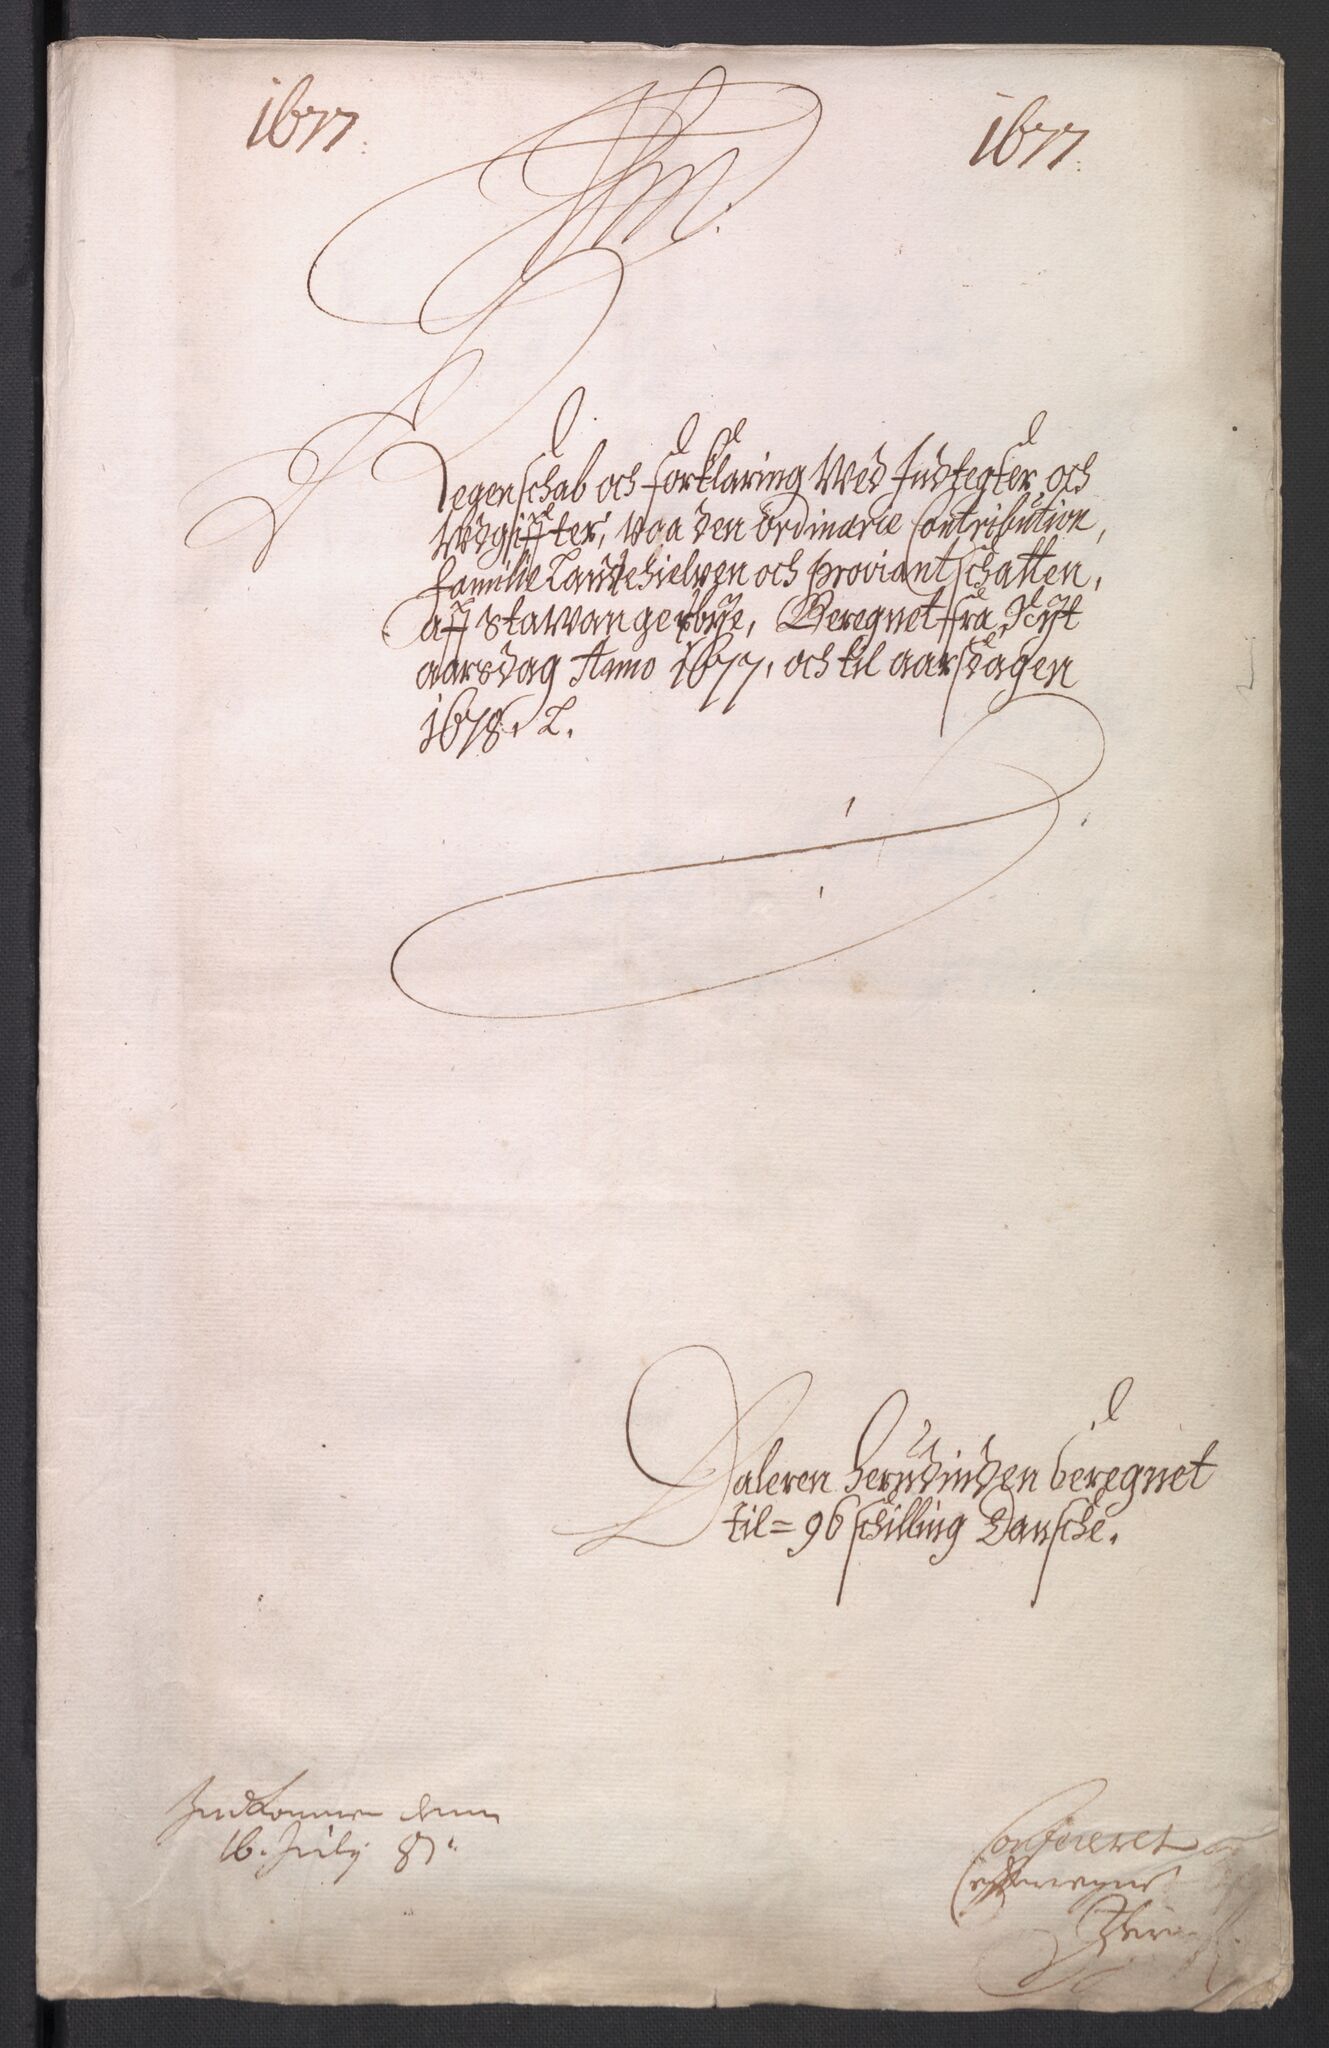 1677
1677
Regenschab och forklaring Ved Indtegter och
Vdgiffter, paa den Ordinarie Contribution,
familie Landehielpen och Proviantschatten,
aff Stavangerbye, Beregnet fra Nyt
aarsdag Anno 1677, och til aarsdagen
1678.
Daleren herudinden beregnet
til = 96 schilling Dansche.
Indkommen denn
16. July 81.
Confereret